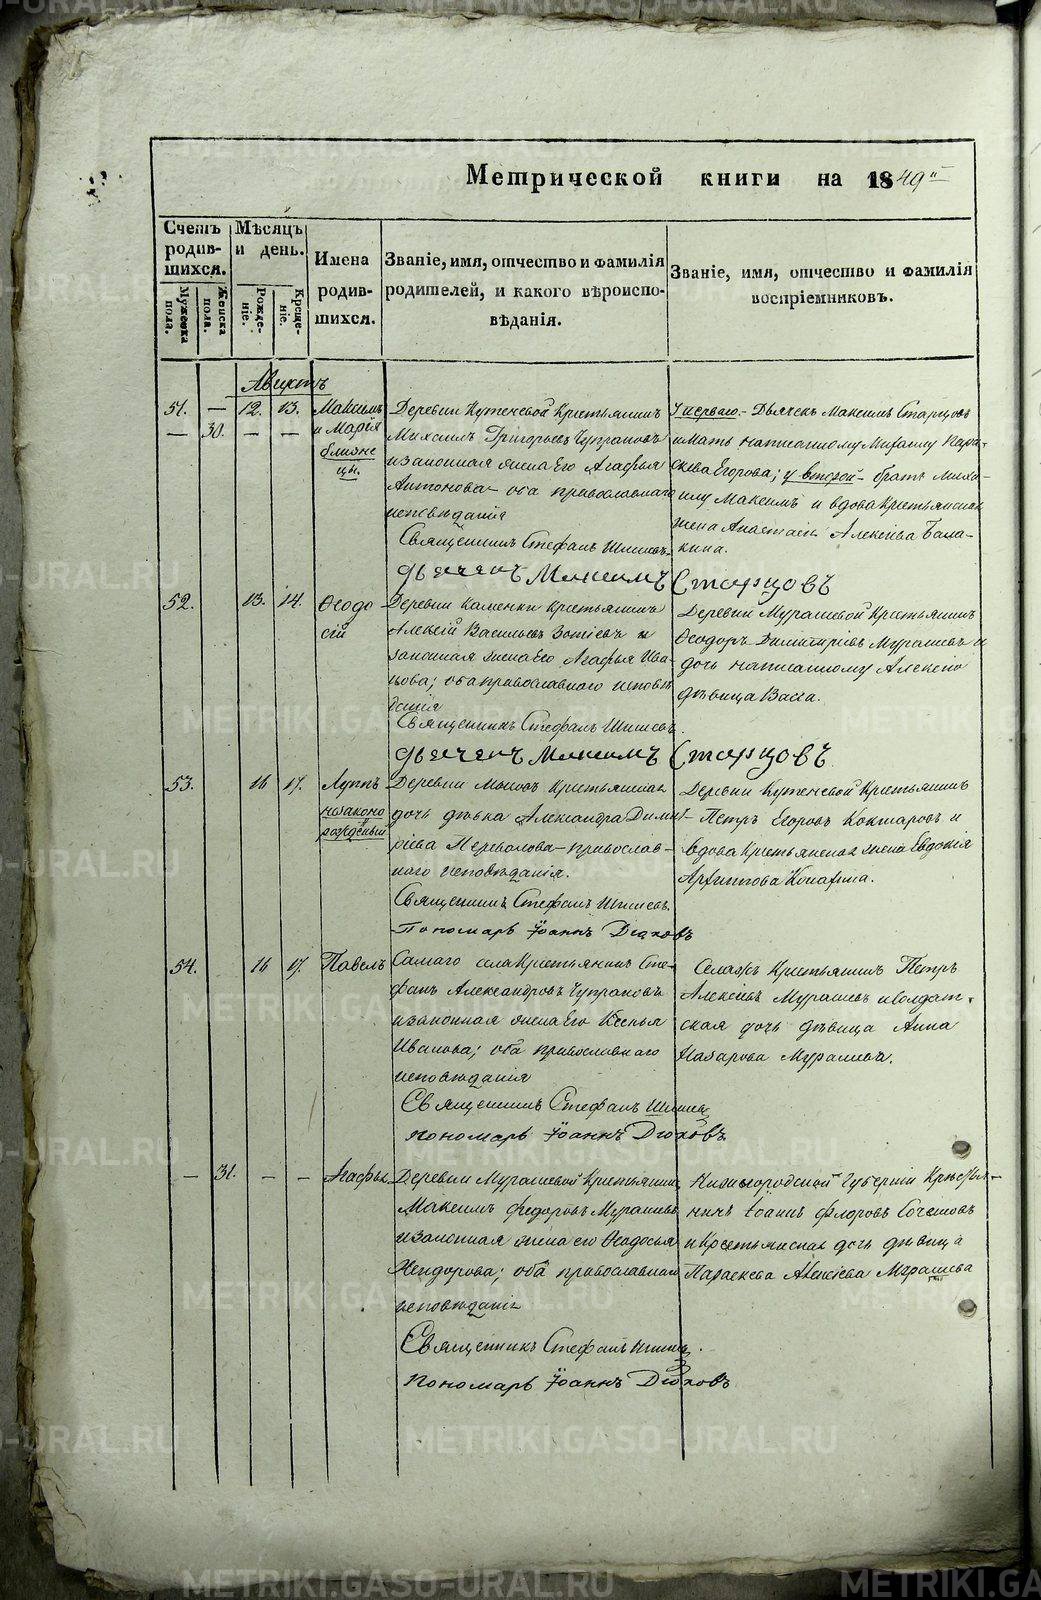 Метрической книги на 1849
Счетъ родившихся.
Мужеска пола.
Женска пола.
Мѣсяцъ и день.
Рожденіе.
Крещеніе.
Имена родившихся.
Званіе, имя, отчество и фамилія родителей, и какого вѣроисповѣданія.
Званіе, имя, отчество и фамилія воспріемниковъ.
Августъ
51. — 12. 13. Максимъ
— 30. — — и Марія
близне-
цы.
Деревни Кутеневой Крестьянинъ
Михаилъ Григорьевъ Чупраковъ
и законная жена его Агафья
Антонова – оба православнаго
исповѣданія
Священникъ Стефанъ
дьячекъ Максимъ Старцовъ
У перваго – Дьячекъ Максимъ Старцовъ
и мать написанному Михаилу Пара-
скева Егорова; у второй – братъ Миха-
илу Максимъ и вдова Крестьянская
жена Анастасія Алексіева Бала-
кина.
52. 13. 14. Ѳеодо
сій
Деревни Каменки крестьянинъ
Алексій Васильевъ Зотіевъ и
законная жена его Агафья Ива-
нова; оба православнаго исповѣ
данія
Священникъ Стефанъ
дьячекъ Максимъ Старцовъ
Деревни Мурашевой Крестьянинъ
Ѳеодоръ Димитріевъ Мурашевъ и
дочь написанному Алексію
дѣвица Васса.
53. 16 17. Луппъ
незаконо
рожденый
Деревни Крестьянская
дочь дѣвка Александра Димит-
ріева Перевалова – православ-
наго исповѣданія.
Священникъ Стефанъ
Пономарь Іоаннъ Дюковъ
Деревни Кутеневой Крестьянинъ
Петръ Егоровъ Кокшаровъ и
вдова Крестьянская жена Евдокія
Архиппова
54. 16 17. Павелъ
Самаго села Крестьянинъ Сте-
фанъ Александровъ Чупраковъ
и законная жена его Ксенья
Иванова; оба православнаго
исповѣданія
Священникъ Стефанъ
пономарь Іоаннъ Дюковъ
Крестьянинъ Петръ
Алексіевъ Мурашевъ и солдат-
ская дочь дѣвица Анна
Назарова Мурашева.
— 31. — — Агафья
Деревни Мурашевой Крестьянинъ
Максимъ Федоровъ Мурашевъ
и законная жена его Ѳеодосья
оба православнаго
исповѣданія
Священникъ Стефанъ
пономарь Іоаннъ Дюковъ
Нижегородской Губерніи Крестья-
нинъ Іоаннъ Флоровъ
и Крестьянская дочь дѣвица
Параскева Алексіева Мурашева
METRIKI.GASO-URAL.RU